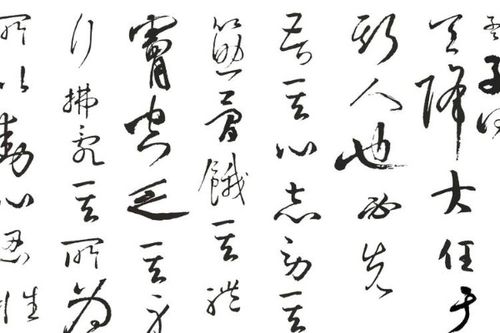 孟子曰
天降大任于
斯人也必先
苦其心志勞其
筋骨餓其體
膚空乏其身
行拂亂其所為
所以動心忍性